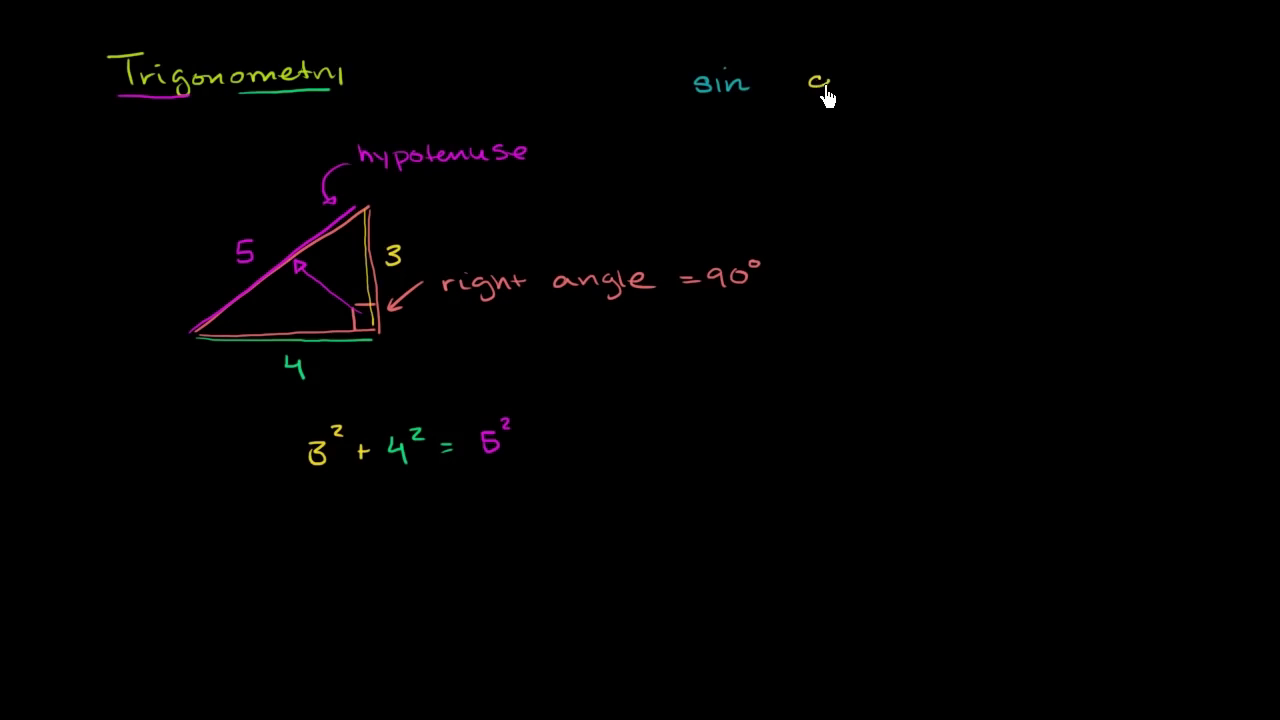 Trigonometry
sin c
hypotenuse
5
3
right angle = 90°
4
3² + 4² = 5²